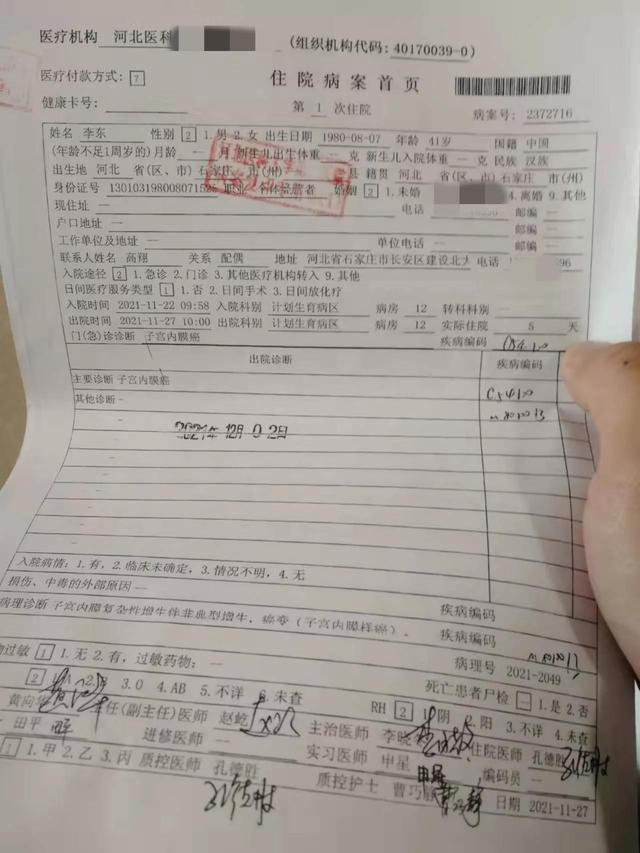 医疗机构 河北医科 (组织机构代码: 40170039-0)
医疗付款方式: 7 住院病案首页
健康卡号: — 第 1 次住院 病案号: 2372716
姓名 李东 性别 2 1.男 2.女 出生日期 1980-08-07 年龄 41岁 国籍 中国
(年龄不足1周岁的)月龄 — 月 新生儿出生体重 — 克 新生儿入院体重 — 克 民族 汉族
出生地 河北 省(区、市) 石家庄 市 县 籍贯 河北 省(区、市) 石家庄 市(州)
身份证号 130103198008071525 职业 个体经营者 婚姻 2 1.未婚 4.离婚 9.其他
现住址 — 电话 邮编 —
户口地址 — 邮编 —
工作单位及地址 — 单位电话 — 邮编 —
联系人姓名 高翔 关系 配偶 地址 河北省石家庄市长安区建设北大 电话 96
入院途径 2 1.急诊 2.门诊 3.其他医疗机构转入 9.其他
日间医疗服务类型 1 1.否 2.日间手术 3.日间放化疗
入院时间 2021-11-22 09:58 入院科别 计划生育病区 病房 12 转科科别 —
出院时间 2021-11-27 10:00 出院科别 计划生育病区 病房 12 实际住院 5 天
门(急)诊诊断 子宫内膜癌 疾病编码 C5410
出院诊断 疾病编码
主要诊断 子宫内膜癌 C5410
其他诊断 —
2021年12月02日
入院病情: 1.有, 2.临床未确定, 3.情况不明, 4.无
损伤、中毒的外部原因 — 疾病编码
病理诊断 子宫内膜复杂性增生伴非典型增生, 癌变(子宫内膜样癌). 疾病编码
病理号 2021-2049
物过敏 1 1.无 2.有, 过敏药物: — 死亡患者尸检 — 1.是 2.否
2 3.O 4.AB 5.不详 6.未查 RH 2 1.阴 2.阳 3.不详 4.未查
黄向华 主任(副主任)医师 赵屹 主治医师 李晓 住院医师 孔德胜
田平 进修医师 — 实习医师 申星 编码员 —
1 1.甲 2.乙 3.丙 质控医师 孔德胜 质控护士 曹巧 日期 2021-11-27